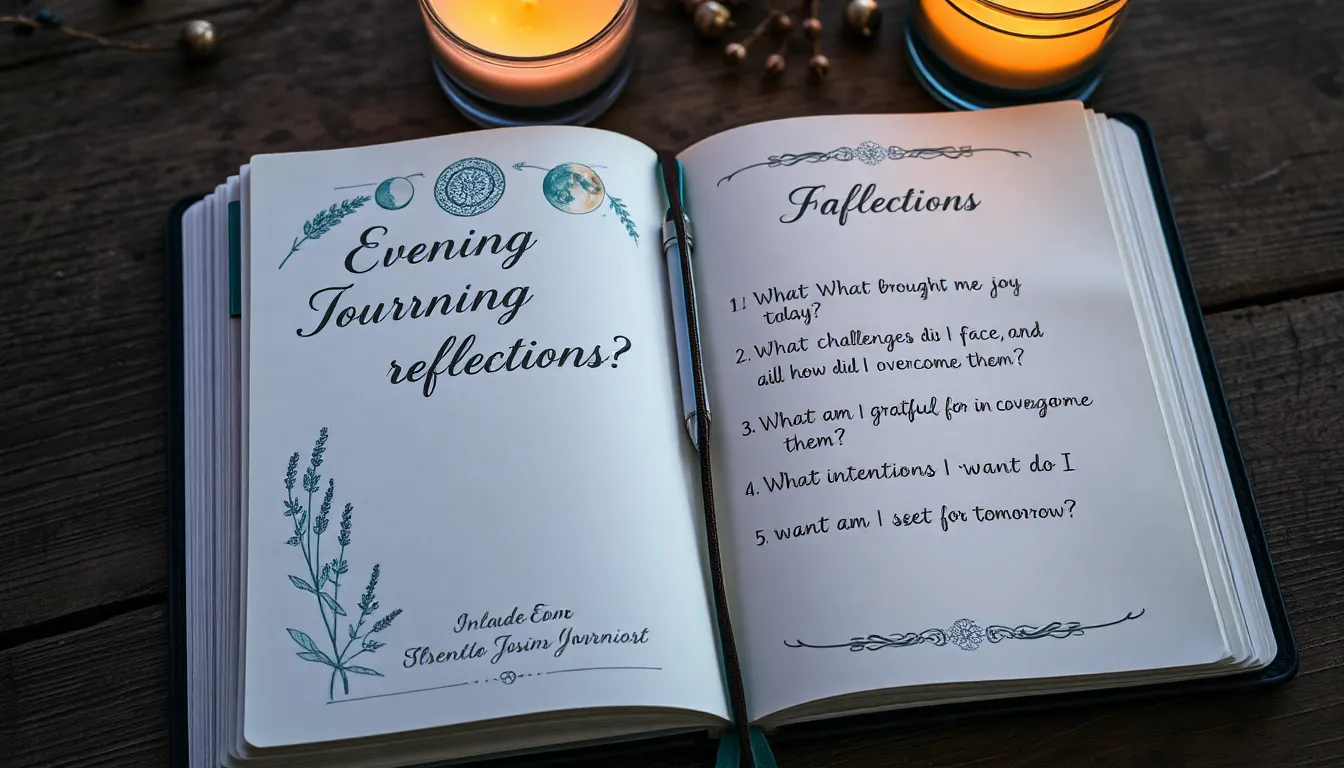 Evening
Journing
reflections?
Inlaude Eom
Slsentlo Josim Yourniost
Faflections
1.! What What brought me joy
talay?
2. What challenges did I face, and
aill how did I overcome them?
3. What am I gratful for in covegome
them?
4. What intentions I want do I
5. want am I seet for tomorrow?